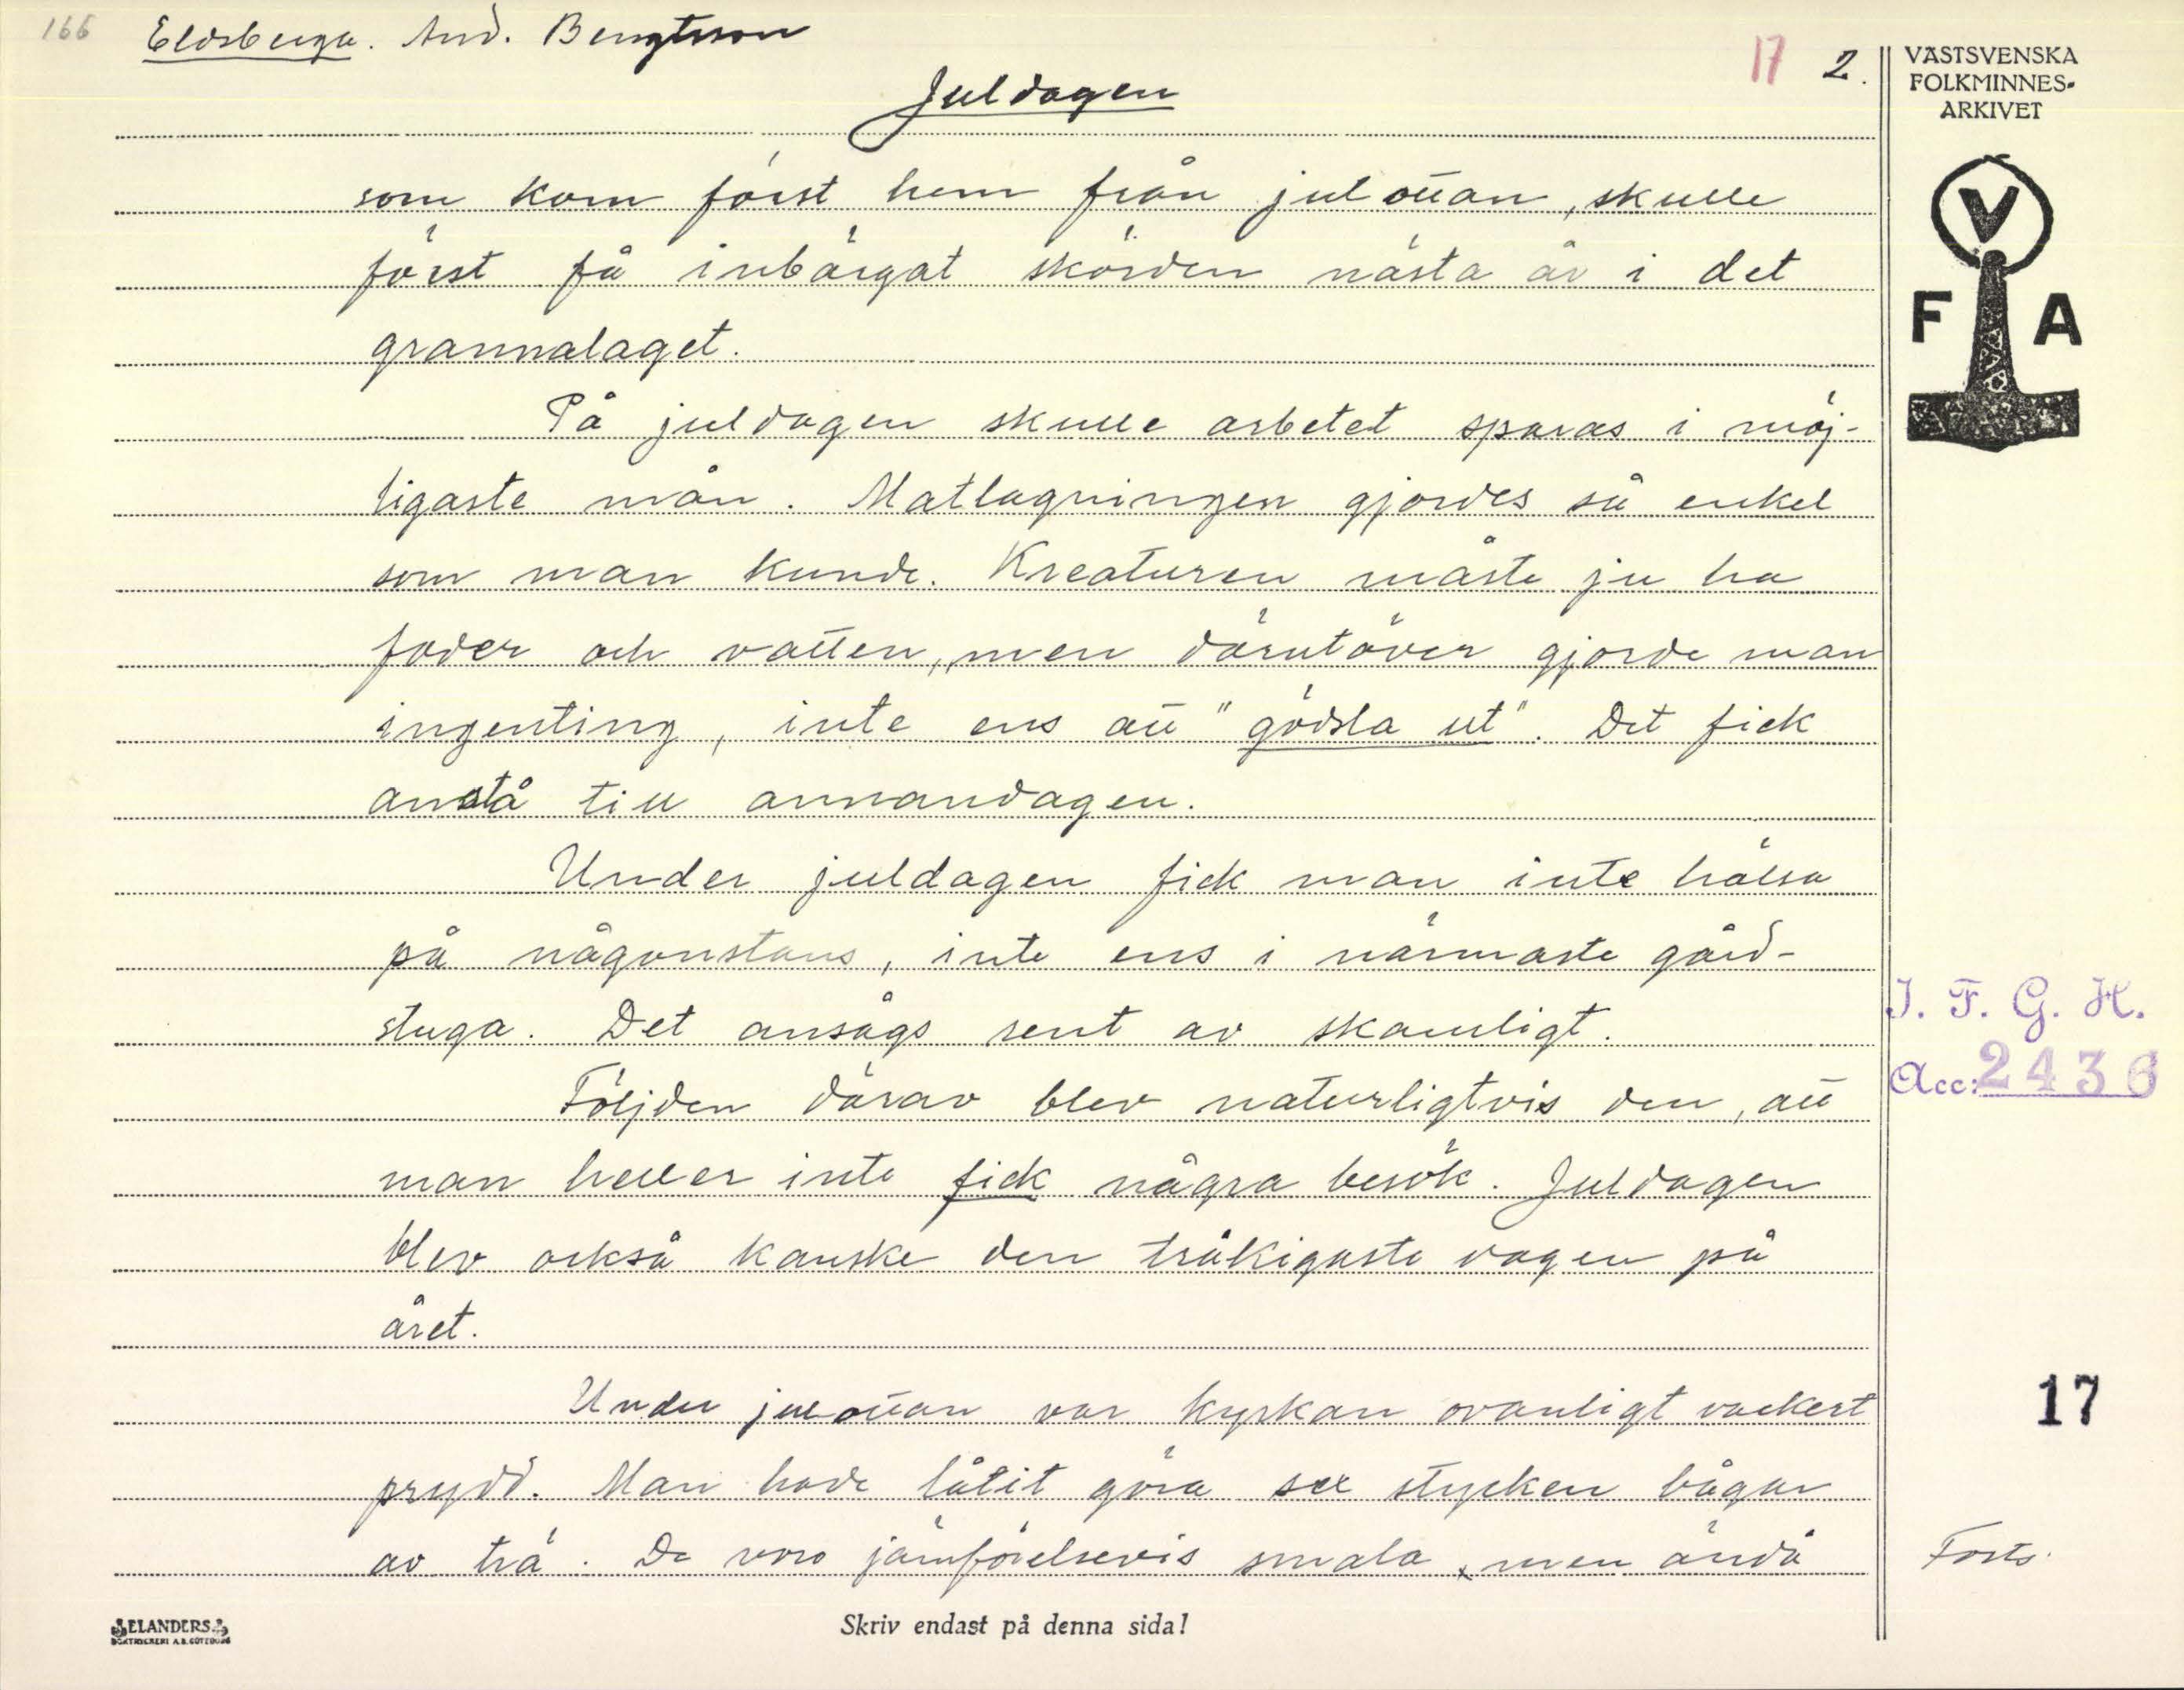 166 Eldsberga. And. Bengtsson
17 2.
Juldagen
VÄSTSVENSKA
FOLKMINNES-
ARKIVET
V
F A
som kom först hem från julottan, skulle
först få inbärgat skörden nästa år i det
grannalaget.
På juldagen skulle arbetet sparas i möj-
ligaste mån. Matlagningen gjordes så enkel
som man kunde. Kreaturen måste ju ha
foder och vatten, men därutöver gjorde man
ingenting, inte ens att "gödsla ut". Det fick
anstå till annandagen.
Under juldagen fick man inte hälsa
på någonstans, inte ens i närmaste gård-
stuga. Det ansågs rent av skamligt.
Följden därav blev naturligtvis den, att
man heller inte fick några besök. Juldagen
blev också kanske den tråkigaste dagen på
året.
Under julottan var kyrkan ovanligt vackert
prydd. Man hade låtit göra sex stycken bågar
av trä. De voro jämförelsevis smala, men ändå
I. F. G. H.
Acc: 2436
17
Forts.
ELANDERS
BOKTRYCKERI A.B. GÖTEBORG
Skriv endast på denna sida!